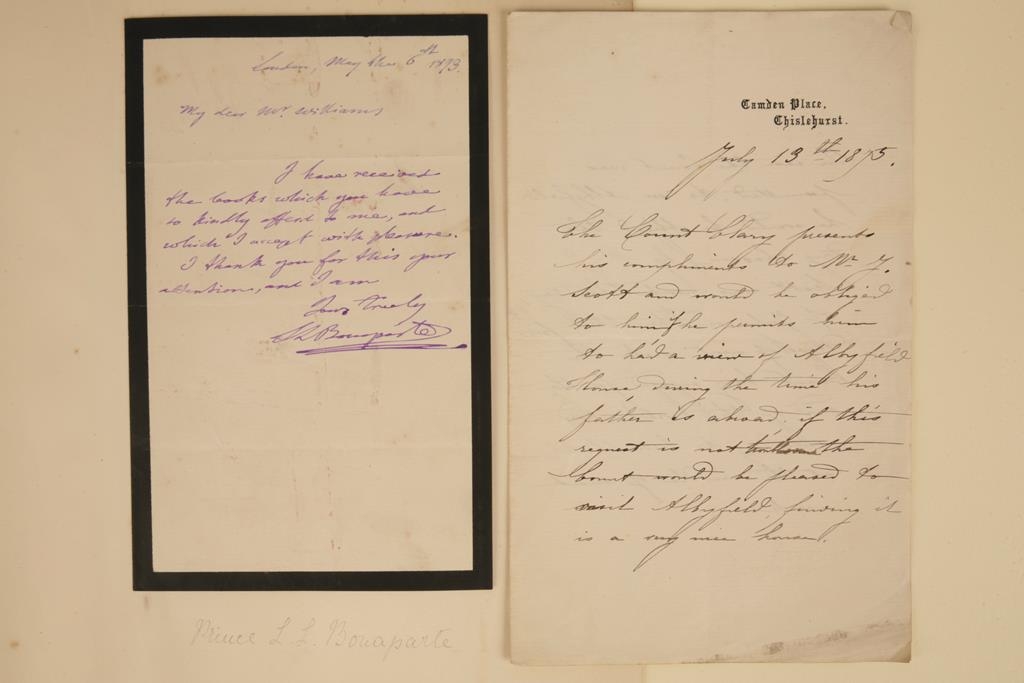 London, May the 6th 1873.
My dear Mr. Williams
I have received
the books which you have
so kindly offerd to me, and
which I accept with pleasure.
I thank you for this your
attention, and I am
Yours Truely
L L Bonaparte
Prince L. L. Bonaparte
Camden Place.
Chislehurst.
July 13th 1875.
The Count Clary presents
his compliments to Mr J.
Scott and would be obliged
to him if he permits him
to had a view of Albyfield
House, during the time his
father is abroad. if this
request is not the
Count would be pleased to
visit Albyfield, finding it
is a very nice house.